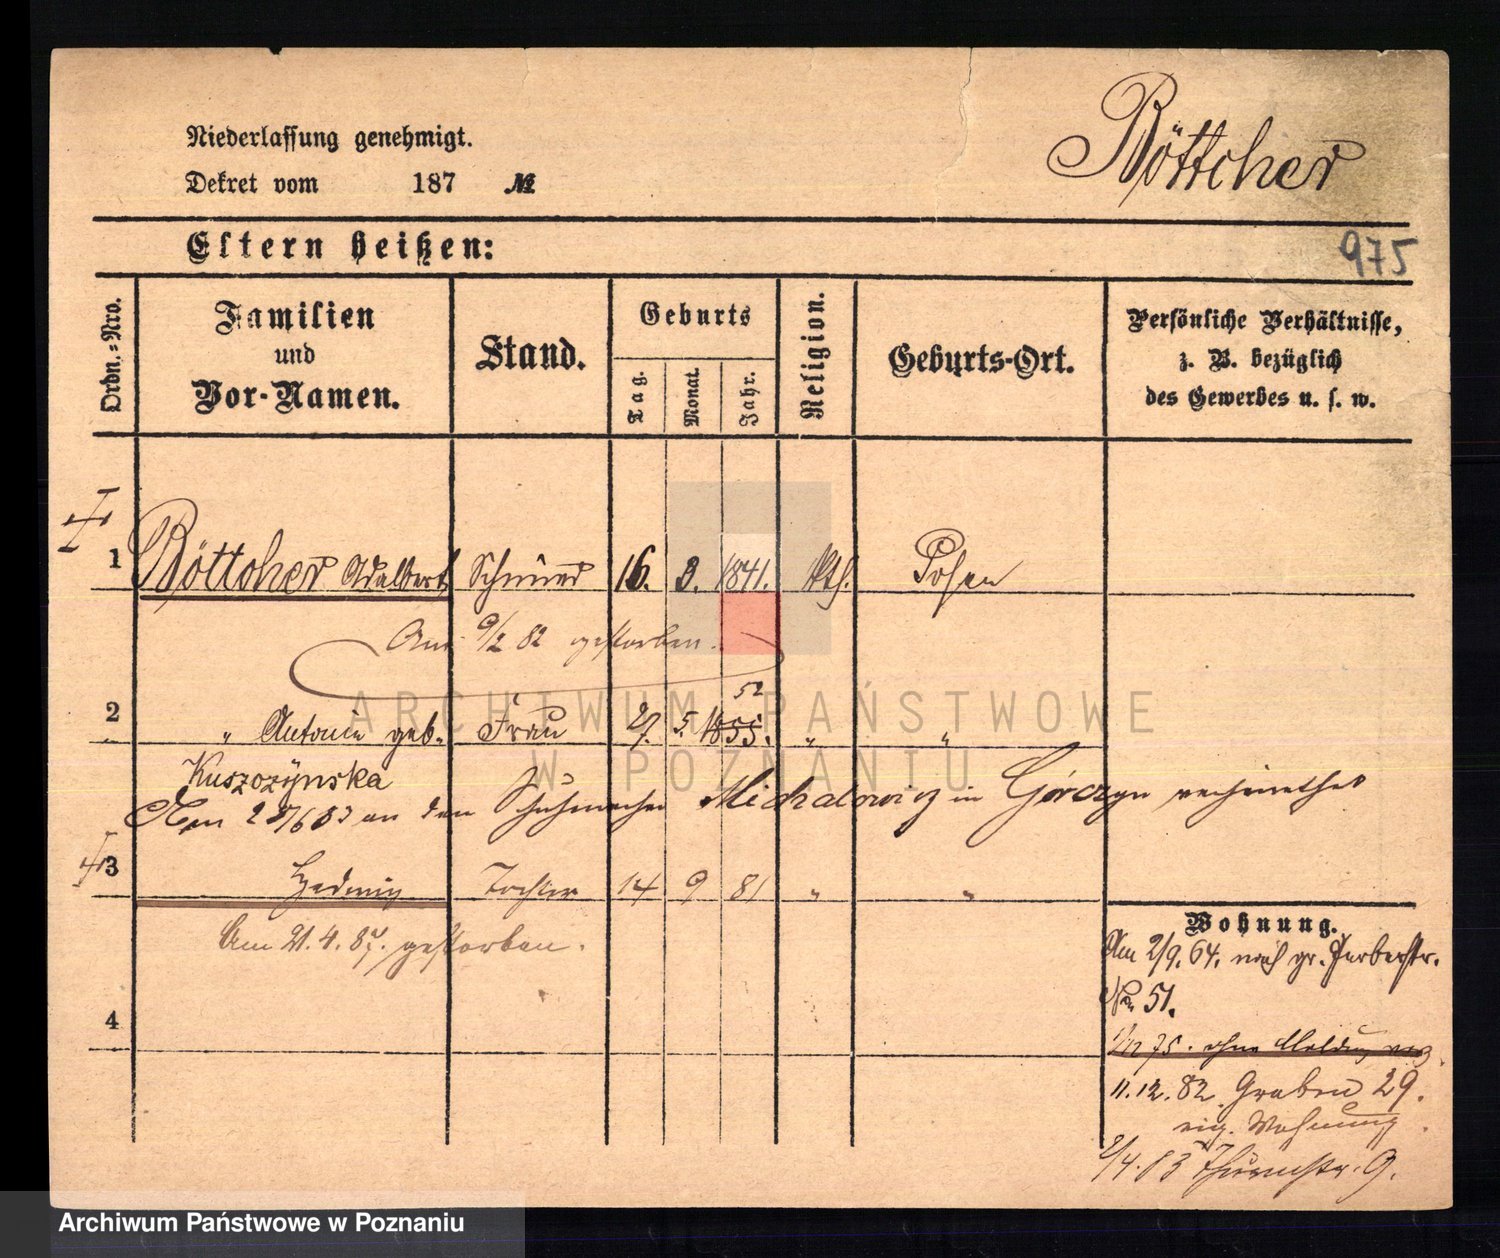 Böttcher
Niederlassung genehmigt.
Dekret vom 187 №
Eltern heißen:
975
Ordn.=Nro.
Familien
und
Vor-Namen.
Stand.
Geburts
Tag.
Monat.
Jahr.
Religion.
Geburts-Ort.
Persönliche Verhältnisse,
z. B. bezüglich
des Gewerbes u. s. w.
1 Böttcher Adalbert 16. 3. 1841. kth. Posen
Am 9/2 82 gestorben.
52
2 " Antonie geb. Frau 27. 5. 1855. " "
Kuszozÿnska
an den Schuhmacher Michalowicz in Górczyn verheirathet
3 Hedwig Tochter 14 9 81 " "
Am 21. 4. 87. gestorben.
4
Wohnung.
Am 2/9. 64. nach gr. Gerberstr.
No 51.
75. ohne Meldung
11.12.82 Graben 29.
eig. Wohnung
2/4.83 Thurmstr. 9.
ARCHIWUM PAŃSTWOWE
W POZNANIU
Archiwum Państwowe w Poznaniu